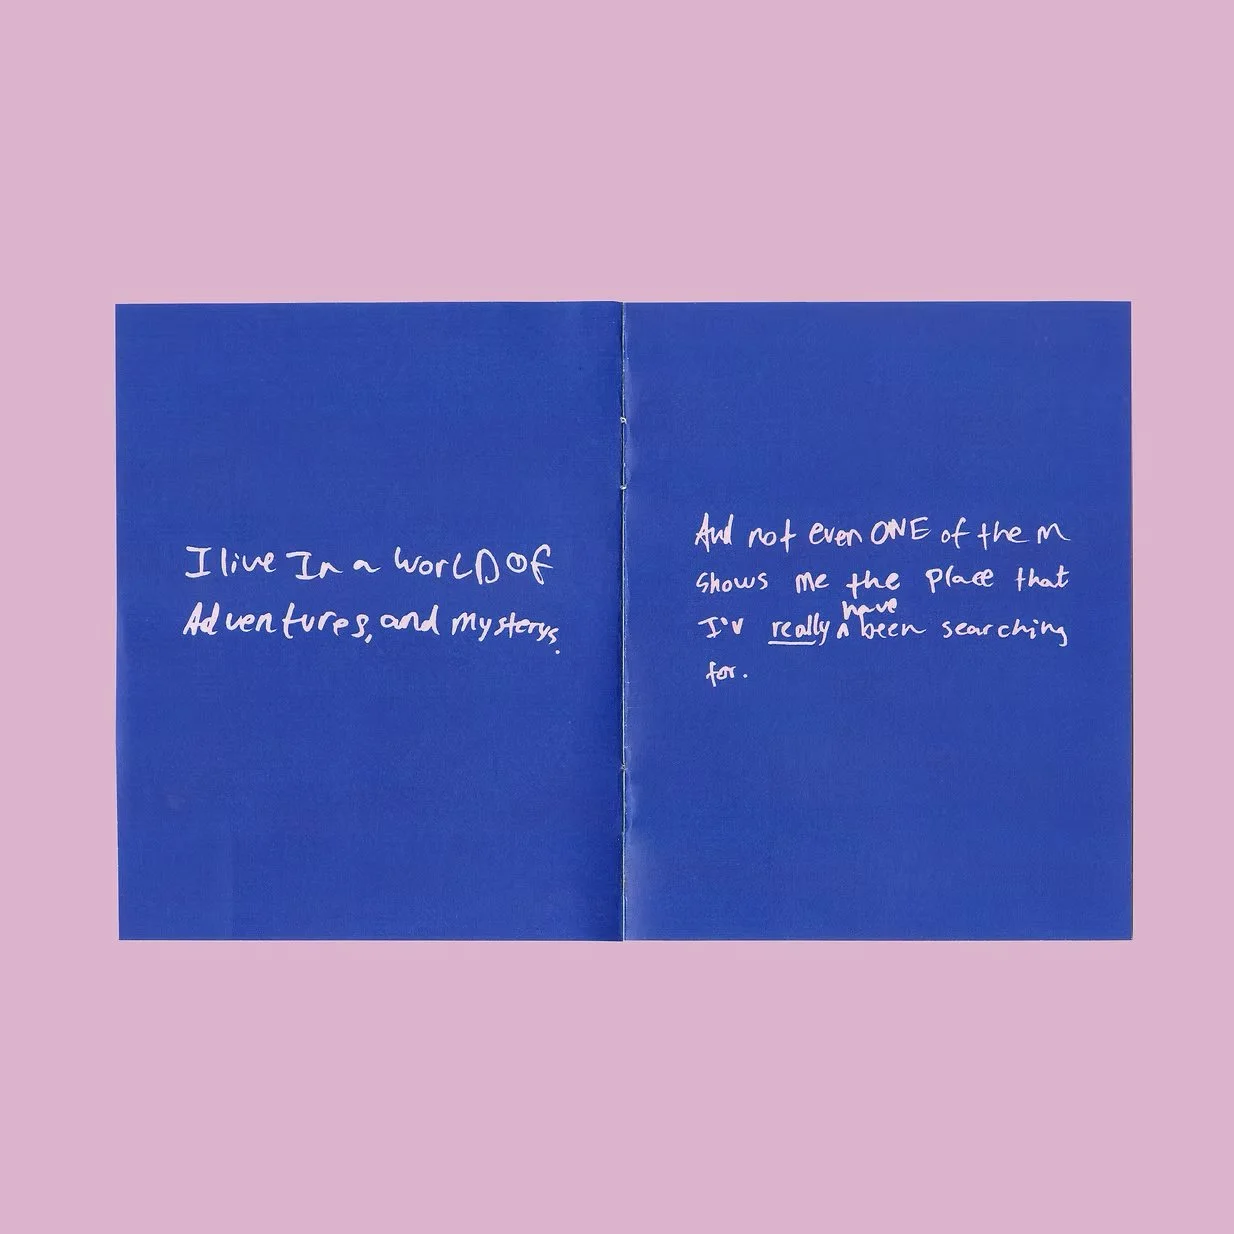 I live In a worLD of
Adventures, and mysterys.
And not even ONE of the m
shows me the place that
have
I'v really ^ been searching
for.